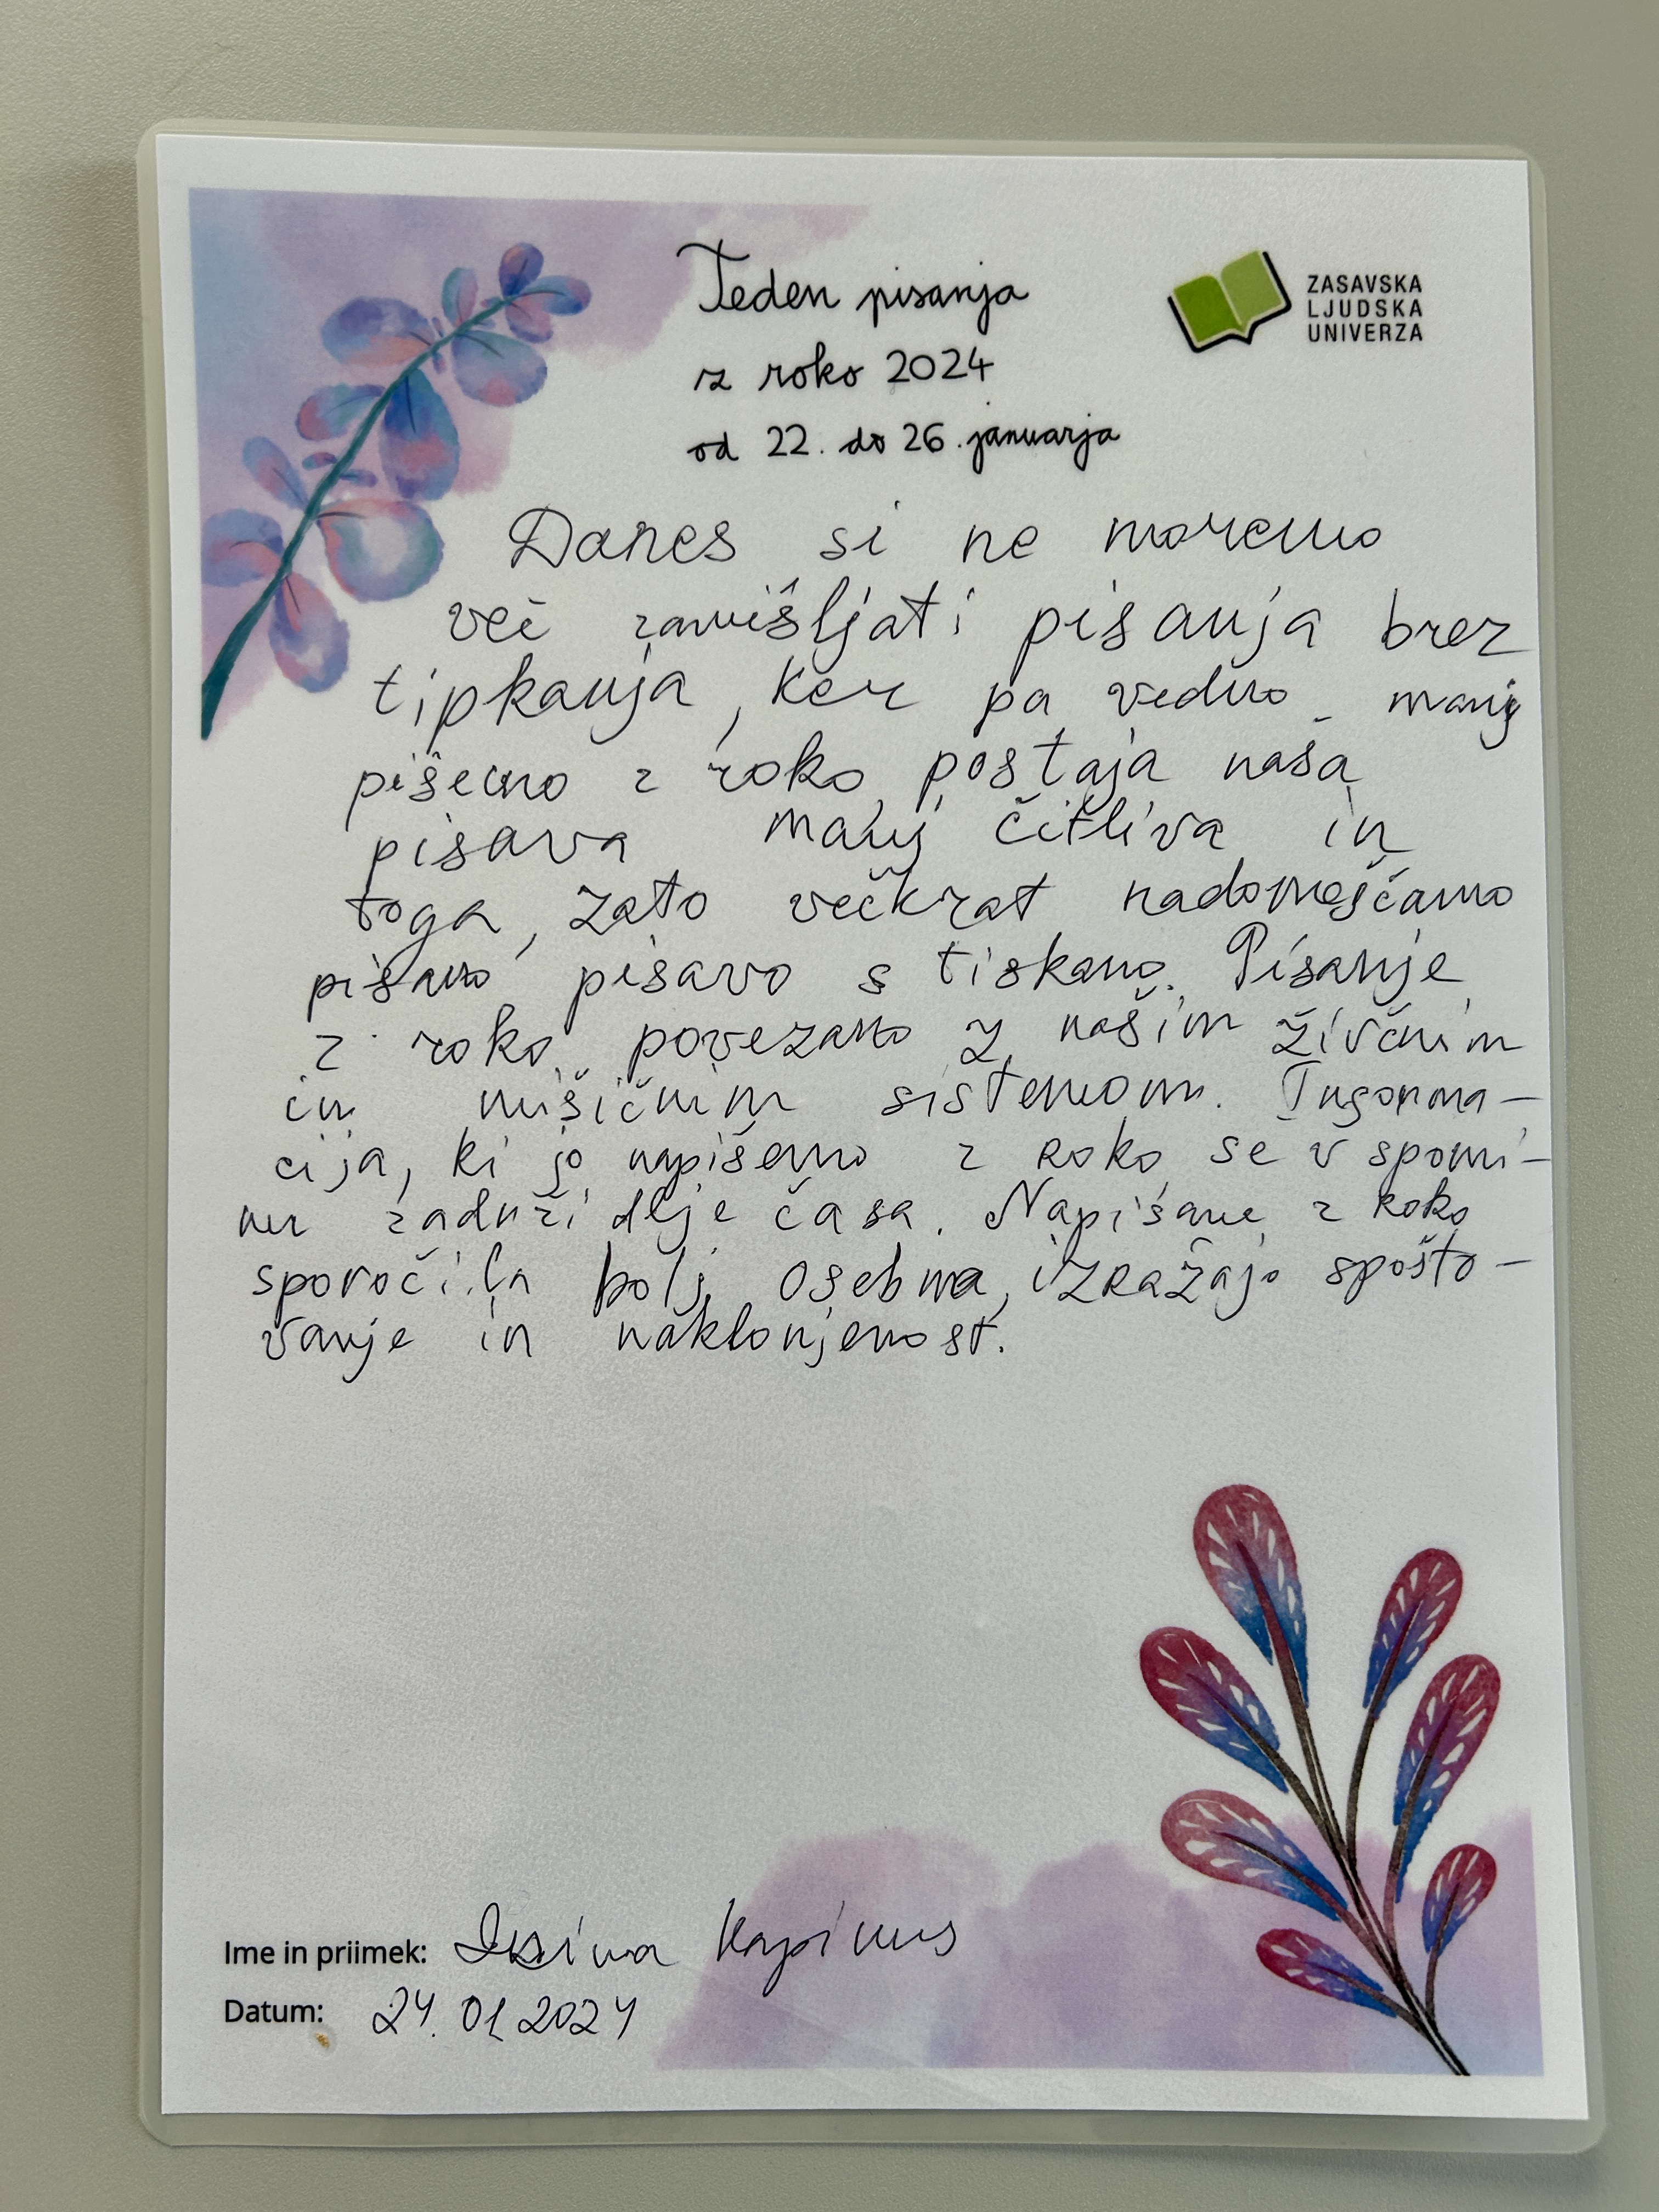 Teden pisanja
z roko 2024
od 22. do 26. januarja
ZASAVSKA
LJUDSKA
UNIVERZA
Danes si ne moremo
več zamišljati pisanja brez
tipkanja, ker pa vedno manj
pišemo z roko, postaja naša
pisava manj čitliva in
toga, zato večkrat nadomeščamo
pisano pisavo s tiskano. Pisanje
z roko povezano z našim živčnim
in mišičnim sistemom. Informa-
cija, ki jo napišemo z roko se v spomi-
nu zadrži dlje časa. Napisane z roko
sporočila bolj osebna, izražajo spošto-
vanje in naklonjenost.
Ime in priimek: Kapinus
Datum: 24.01.2024